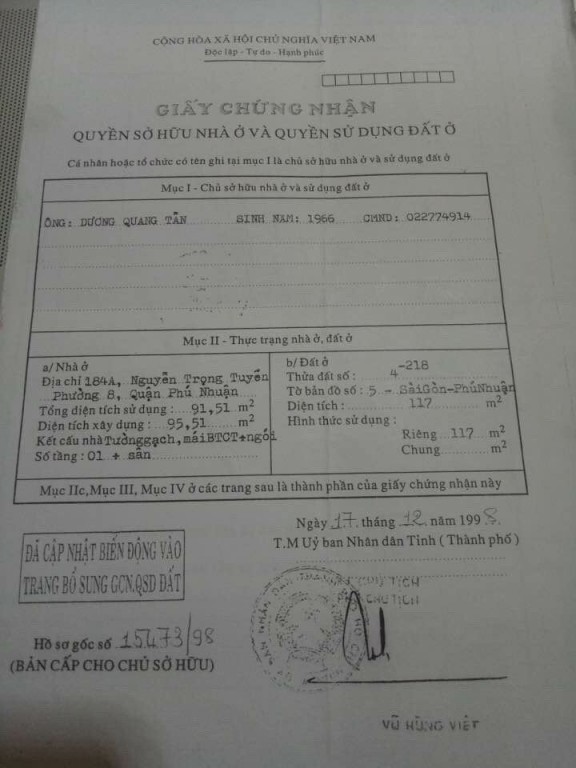 CỘNG HÒA XÃ HỘI CHỦ NGHĨA VIỆT NAM
Độc lập - Tự do - Hạnh phúc
GIẤY CHỨNG NHẬN
QUYỀN SỞ HỮU NHÀ Ở VÀ QUYỀN SỬ DỤNG ĐẤT Ở
Cá nhân hoặc tổ chức có tên ghi tại mục I là chủ sở hữu nhà ở và sử dụng đất ở
Mục I - Chủ sở hữu nhà ở và sử dụng đất ở
ÔNG: DƯƠNG QUANG TẤN SINH NĂM: 1966 CMND: 022774914
Mục II - Thực trạng nhà ở, đất ở
a/ Nhà ở
Địa chỉ 184A, Nguyễn Trọng Tuyển
Phường 8, Quận Phú Nhuận
Tổng diện tích sử dụng : 91,51 m²
Diện tích xây dựng : 95,51 m²
Kết cấu nhà Tường gạch, mái BTCT+ngói
Số tầng : 01 + sân
b/ Đất ở
Thửa đất số : 4-218
Tờ bản đồ số : 5 - SàiGòn-PhúNhuận
Diện tích : 117 m²
Hình thức sử dụng :
Riêng 117 m²
Chung m²
Mục IIc, Mục III, Mục IV ở các trang sau là thành phần của giấy chứng nhận này
Ngày 17 tháng 12 năm 1998.
T.M Uỷ ban Nhân dân Tỉnh ( Thành phố )
ĐÃ CẬP NHẬT BIẾN ĐỘNG VÀO
TRANG BỔ SUNG GCN.QSD ĐẤT
CHỦ TỊCH
PHÓ CHỦ TỊCH
Hồ sơ gốc số 15473/98
(BẢN CẤP CHO CHỦ SỞ HỮU)
VŨ HÙNG VIỆT